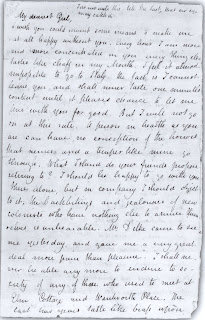 My dearest Girl,
I wish you could invent some means to make me
at all happy without you. Every hour I am more
and more concentrated in you; every thing else
tastes like chaff in my Mouth. I feel it almost
impossible to go to Italy the fact is I cannot
leave you, and shall never taste one minute's
content until it pleases chance to let me
live with you for good. But I will not go
on at this rate. A person in health as you
are can have no conception of the horrors
that nerves and a temper like mine go
through. What Island do your friends propose
retiring to? I should be happy to go with you
there alone, but in company I should object
to it; the backbitings and jealousies of new
colonists who have nothing else to amuse them
selves is unbearable. Mr Dilke came to see
me yesterday, and gave me a very great
deal more pain than pleasure. I shall ne
ver be able any more to endure to so
ciety of any of those who used to meet at
Elm Cottage and Wentworth Place. The
last two years taste like brass upon